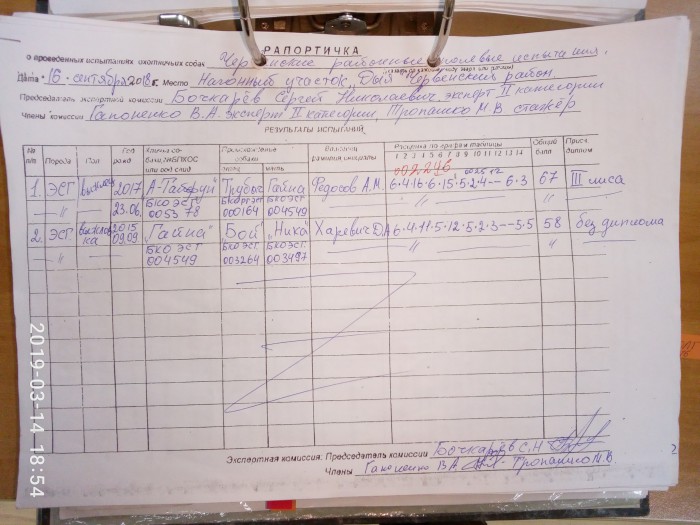 РАПОРТИЧКА
о проведенных испытаниях охотничьих собак Червенские районные полевые испытания.
Дата 16 сентября 2018 г. Место Нагонный участок
Червенский район
Председатель экспертной комиссии Бочкарёв Сергей Николаевич эксперт II категории
Члены комиссии Гапоненко В.А. эксперт II категории, Тропашко М.В стажёр
РЕЗУЛЬТАТЫ ИСПЫТАНИЙ
№ п/п Порода Пол Год рожд Кличка собаки, №БПКОС или год снид Происхождение собаки отец мать Владелец фамилия инициалы Расценка по графам таблицы 1 2 3 4 5 6 7 8 9 10 11 12 13 14 Общий балл Присв. диплом
002246
1. ЭСГ 2017 Трубач Гайна Федосов А.М. 6·4·16·6·15·5·2·4-- 6·3 67 III лиса
〃 23.06. БКО ЭСГ 0053 78 000164 БКО ЭСГ 004549 〃 〃
2. ЭСГ выжловка 2015 09.09 "Гайна" "Бой" "Ника" Харевич Д.А 6·4·11·5·12·5·2·3--5·5 58 без диплома
〃 БКО ЭСГ 004549 БКО ЭСГ 003264 БКО ЭСГ 003497 〃 〃
Экспертная комиссия: Председатель комиссии Бочкарёв С.Н
Члены Гапоненко В.А. Тропашко М.В.
2
2019-03-14 18:54